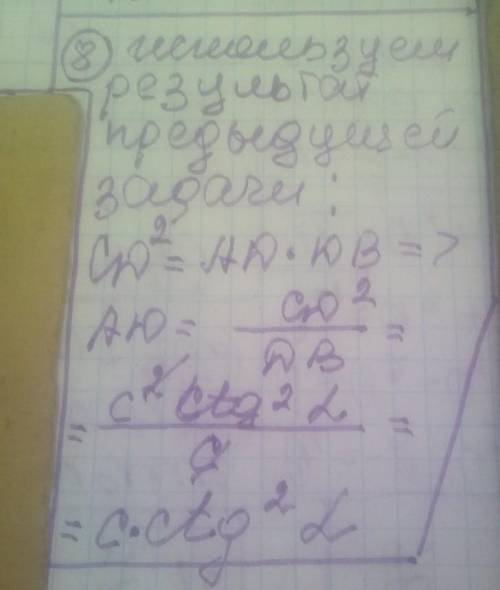 ⑧ используем
результат
предыдущей
задачи:
CD² = AD · DB =>
AD = CD² / DB =
= c² ctg² α / c =
= c · ctg² α